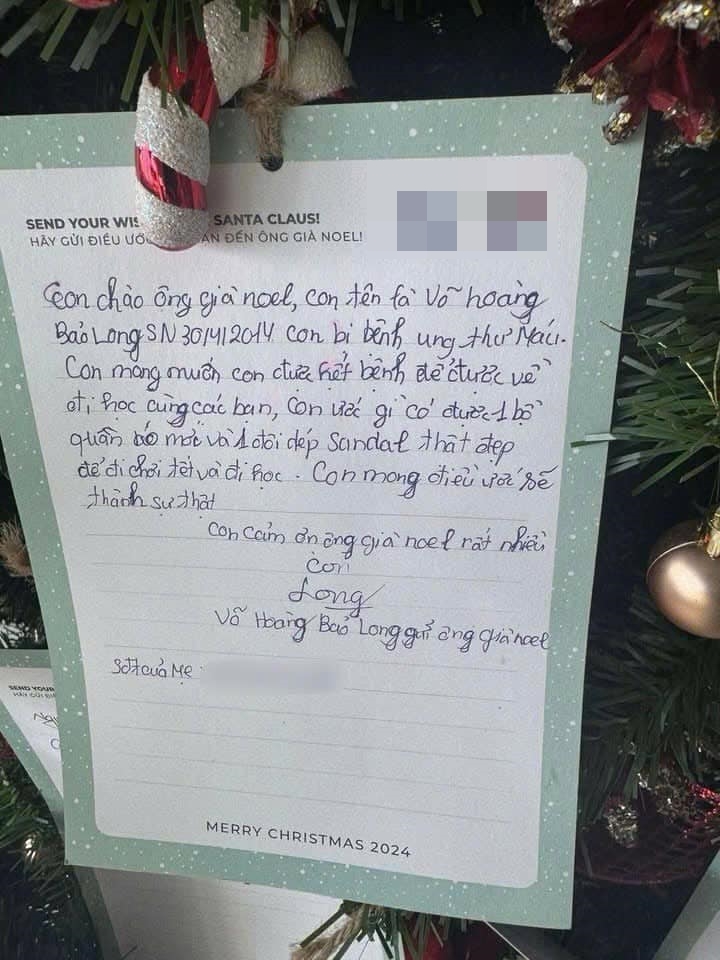 SEND YOUR WIS SANTA CLAUS!
HÃY GỬI ĐIỀU ƯỚ ĐẾN ÔNG GIÀ NOEL!
Con chào ông già noel, con tên là Võ hoàng
Bảo Long SN 30/4/2014 con bị bệnh ung thư Máu.
Con mong muốn con được hết bệnh để được về
đi học cùng các bạn, con ước gì có được 1 bộ
quần bò mới và 1 đôi dép Sandal thật đẹp
để đi chơi tết và đi học. Con mong điều ước sẽ
thành sự thật
Con cảm ơn ông già noel rất nhiều
Con
Long
Võ Hoàng Bảo Long gửi ông già noel
Sđt của Mẹ:
SEND YOUR
MERRY CHRISTMAS 2024